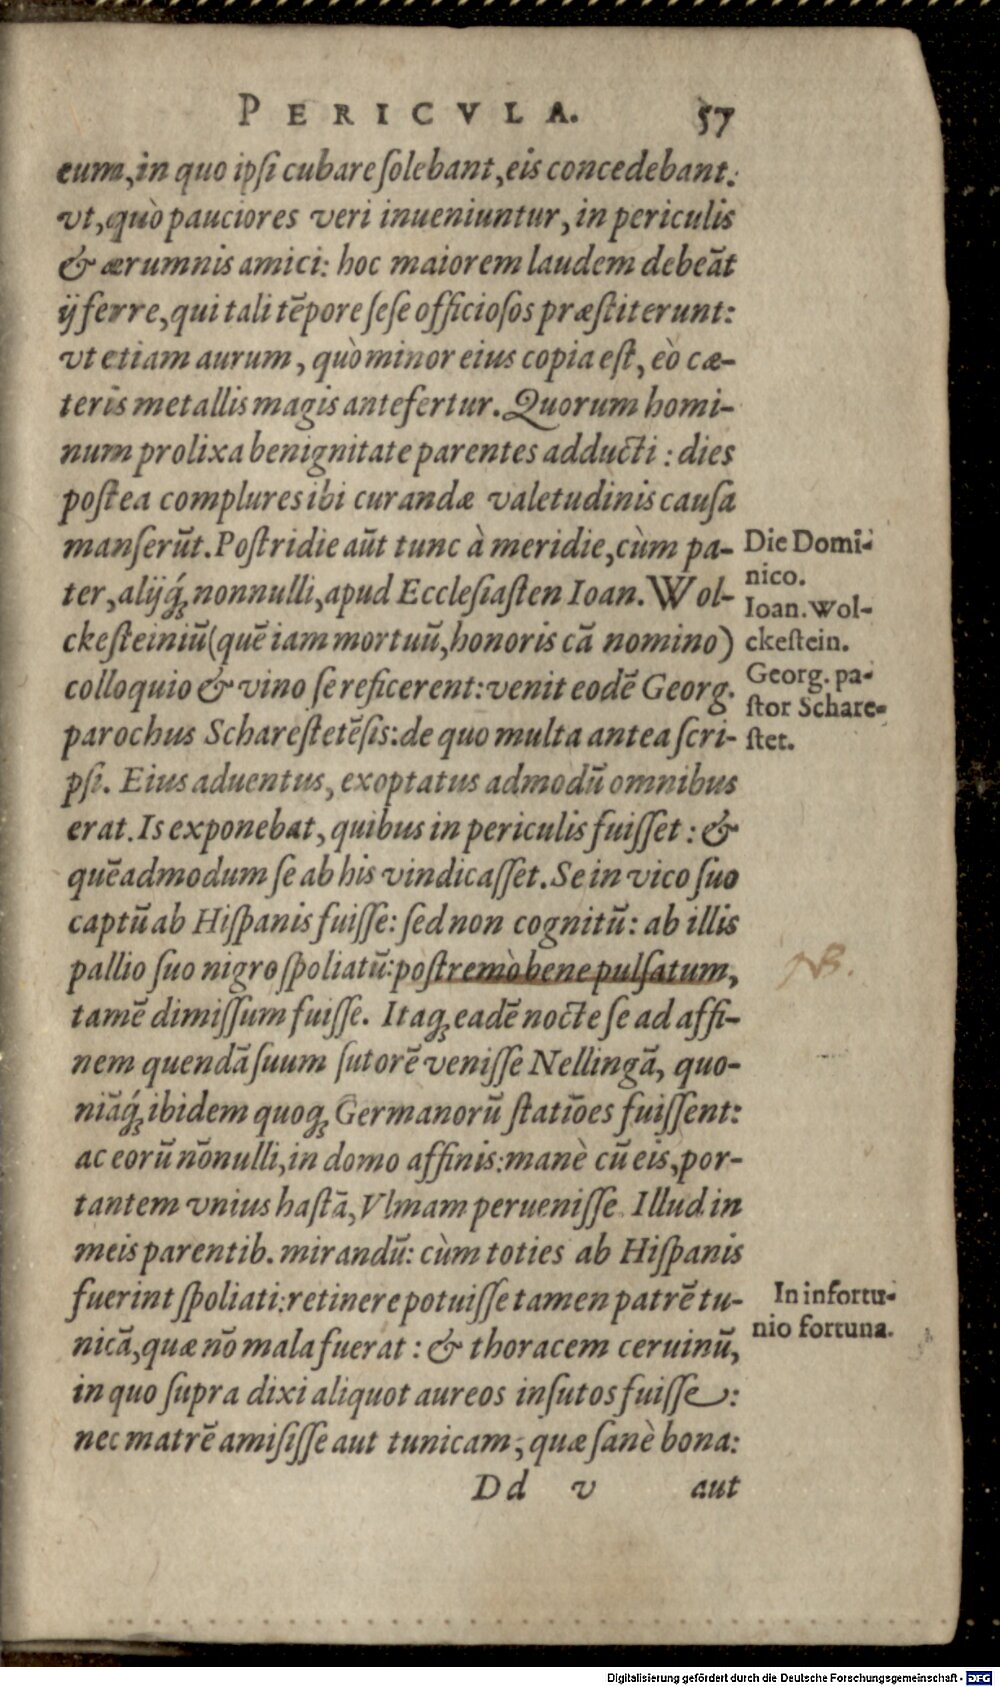 PERICVLA. 57
eum, in quo ipſi cubare ſolebant, eis concedebant:
vt, quò pauciores veri inueniuntur, in periculis
& ærumnis amici: hoc maiorem laudem debeāt
ij ferre, qui tali tēpore ſeſe officioſos præſtiterunt:
vt etiam aurum, quò minor eius copia eſt, eò cæ-
teris metallis magis antefertur. Quorum homi-
num prolixa benignitate parentes adducti: dies
poſtea complures ibi curandæ valetudinis cauſa
manſerūt. Poſtridie aūt tunc à meridie, cùm pa-
ter, alijq́; nonnulli, apud Eccleſiaſten Ioan. Wol-
ckeſteiniū (quē iam mortuū, honoris cā nomino)
colloquio & vino ſe reficerent: venit eodē Georg.
parochus Schareſtetēſis: de quo multa antea ſcri-
pſi. Eius aduentus, exoptatus admodū omnibus
erat. Is exponebat, quibus in periculis fuiſſet: &
quēadmodum ſe ab his vindicaſſet. Se in vico ſuo
captū ab Hiſpanis fuiſſe: ſed non cognitū: ab illis
pallio ſuo nigro ſpoliatū: poſtremò bene pulſatum,
tamē dimiſſum fuiſſe. Itaq; eadē nocte ſe ad affi-
nem quendā ſuum ſutorē veniſſe Nellingā, quo-
niāq́; ibidem quoq; Germanorū ſtatiōes fuiſſent:
ac eorū nōnulli, in domo affinis: manè cū eis, por-
tantem vnius haſtā, Vlmam perueniſſe. Illud in
meis parentib. mirandū: cùm toties ab Hiſpanis
fuerint ſpoliati: retinere potuiſſe tamen patrē tu-
nicā, quæ nō mala fuerat: & thoracem ceruinū,
in quo ſupra dixi aliquot aureos inſutos fuiſſe:
nec matrē amiſiſſe aut tunicam, quæ ſanè bona:
Dd v aut
Die Domi-
nico.
Ioan. Wol-
ckeſtein.
Georg. pa-
ſtor Schare-
ſtet.
NB.
In infortu-
nio fortuna.
Digitalisierung gefördert durch die Deutsche Forschungsgemeinschaft - DFG